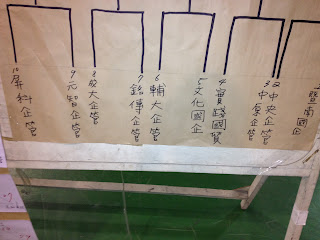 1 暨南國企
2 中央企管
3 中原企管
4 實踐國貿
5 文化國企
6 輔大企管
7 銘傳企管
8 大企管
9 元智企管
10 屏科企管